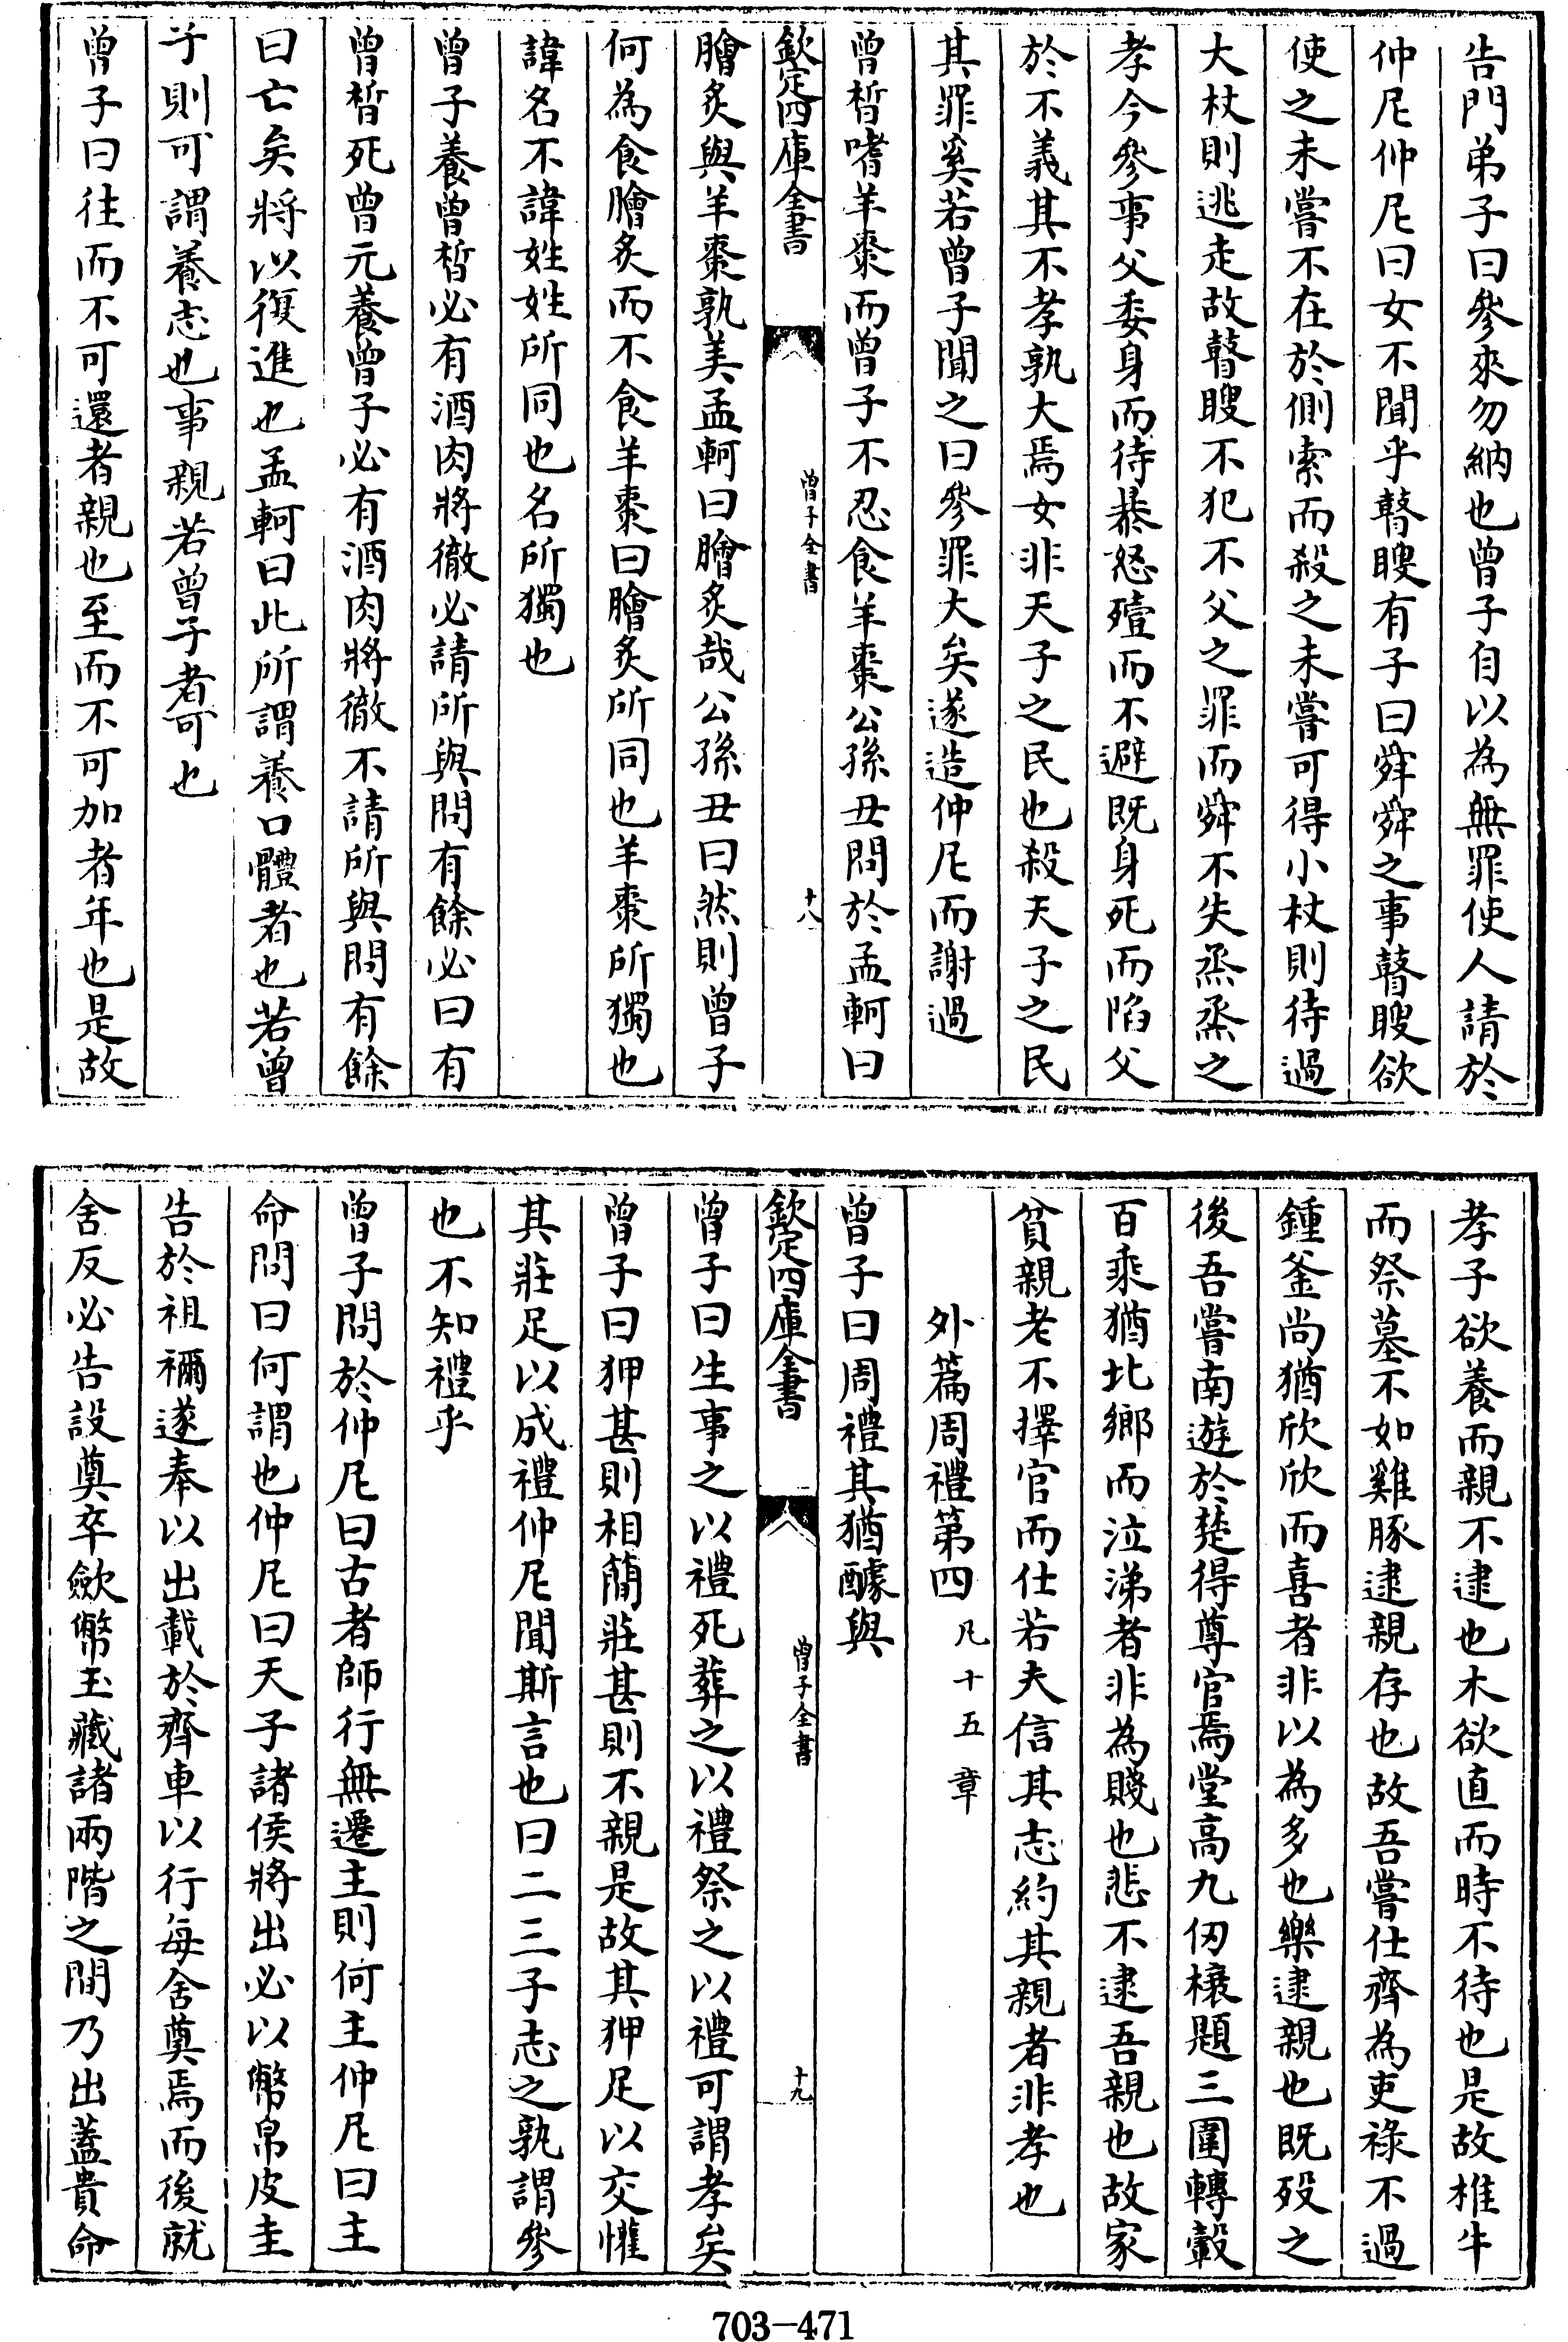 告門弟子曰參來勿納也曾子自以為無罪使人請於
仲尼仲尼曰女不聞乎瞽瞍有子曰舜舜之事瞽瞍欲
使之未嘗不在於側索而殺之未嘗可得小杖則待過
大杖則逃走故瞽瞍不犯不父之罪而舜不失烝烝之
孝今參事父委身而待暴怒殪而不避既身死而陷父
於不義其不孝孰大焉女非天子之民也殺天子之民
其罪奚若曾子聞之曰參罪大矣遂造仲尼而謝過
曾晳嗜羊棗而曾子不忍食羊棗公孫丑問於孟軻曰
欽定四庫全書
曾子全書
十八
膾炙與羊棗孰美孟軻曰膾炙哉公孫丑曰然則曾子
何為食膾炙而不食羊棗曰膾炙所同也羊棗所獨也
諱名不諱姓姓所同也名所獨也
曾子養曾晳必有酒肉將徹必請所與問有餘必曰有
曾晳死曾元養曾子必有酒肉將徹不請所與問有餘
曰亡矣將以復進也孟軻曰此所謂養口體者也若曾
子則可謂養志也事親若曾子者可也
曾子曰往而不可還者親也至而不可加者年也是故
孝子欲養而親不逮也木欲直而時不待也是故椎牛
而祭墓不如雞豚逮親存也故吾嘗仕齊為吏祿不過
鍾釜尚猶欣欣而喜者非以為多也樂逮親也既歿之
後吾嘗南遊於楚得尊官焉堂高九仞榱題三圍轉轂
百乘猶北鄉而泣涕者非為賤也悲不逮吾親也故家
貧親老不擇官而仕若夫信其志約其親者非孝也
外篇周禮第四 凡十五章
曾子曰周禮其猶醵與
欽定四庫全書
曾子全書
十九
曾子曰生事之以禮死葬之以禮祭之以禮可謂孝矣
曾子曰狎甚則相簡莊甚則不親是故其狎足以交懽
其莊足以成禮仲尼聞斯言也曰二三子志之孰謂參
也不知禮乎
曾子問於仲尼曰古者師行無遷主則何主仲尼曰主
命問曰何謂也仲尼曰天子諸侯將出必以幣帛皮圭
告於祖禰遂奉以出載於齊車以行每舍奠焉而後就
舍反必告設奠卒歛幣玉藏諸兩階之間乃出蓋貴命
703-471